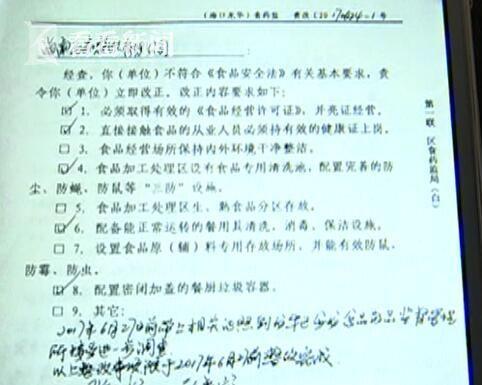 看看新闻
(海口龙华)食药监 责改[20
经查，你(单位)不符合《食品安全法》有关基本要求，责
令你(单位)立即改正。改正内容要求如下：
☑ 1. 必须取得有效的《食品经营许可证》，并亮证经营。
☑ 2. 直接接触食品的从业人员必须持有效的健康证上岗。
□ 3. 食品经营场所保持内外环境干净整洁。
☑ 4. 食品加工处理区设有食品专用清洗池，配置完善的防
尘、防蝇、防鼠等“三防”设施。
□ 5. 食品加工处理区生、熟食品分区存放。
☑ 6. 配备能正常运转的餐用具清洗、消毒、保洁设施。
□ 7. 设置食品原(辅)料专用存放场所，并能有效防鼠、
防霉、防虫。
☑ 8. 配置密闭加盖的餐厨垃圾容器。
□ 9. 其它：
2017年6月27日前带上相关证照到
所接受进一步调查
以上整改事项限于2017年6月27日前整改完成
第一联 区食药监局(白)